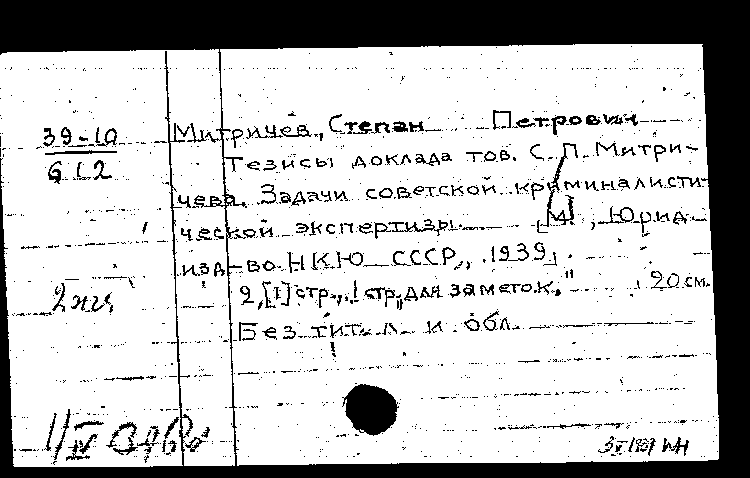 39-10
612
Митричев, Степан Петрович
Тезисы доклада тов. С. П. Митри-
чева. Задачи советской криминалисти-
ческой экспертизы. [М], Юрид.
изд-во НКЮ СССР, 1939.
2, [1] стр., 1 стр. „для заметок." 20 см.
Без тит. л. и обл.
2 экз.